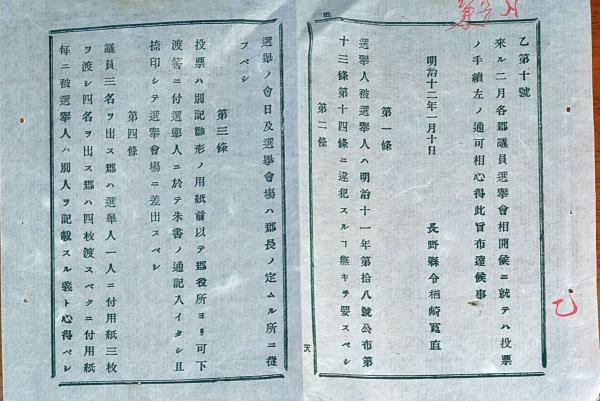 乙第十號
來ル二月各郡議員選擧會相開候ニ就テハ投票
ノ手續左ノ通可相心得此旨布達候事
明治十二年一月十日
長野縣令楢崎寛直
第一條
選擧人被選擧人ハ明治十一年第拾八號公布第
十三條第十四條ニ違犯スルヿ無キヲ要スベシ
第二條
天
選擧ノ會日及選擧會塲ハ郡長ノ定ムル所ニ從
フベシ
第三條
投票ハ別記雛形ノ用紙前以テ郡役所ヨリ可下
渡筈ニ付選擧人ニ於テ朱書ノ通記入イタシ且
捺印シテ選擧會塲ニ差出スベシ
第四條
議員三名ヲ出ス郡ハ選擧人一人ニ付用紙三枚
ヲ渡シ四名ヲ出ス郡ハ四枚渡スベクニ付用紙
毎ニ被選擧人ハ別人ヲ記載スル義ト心得ベシ
乙